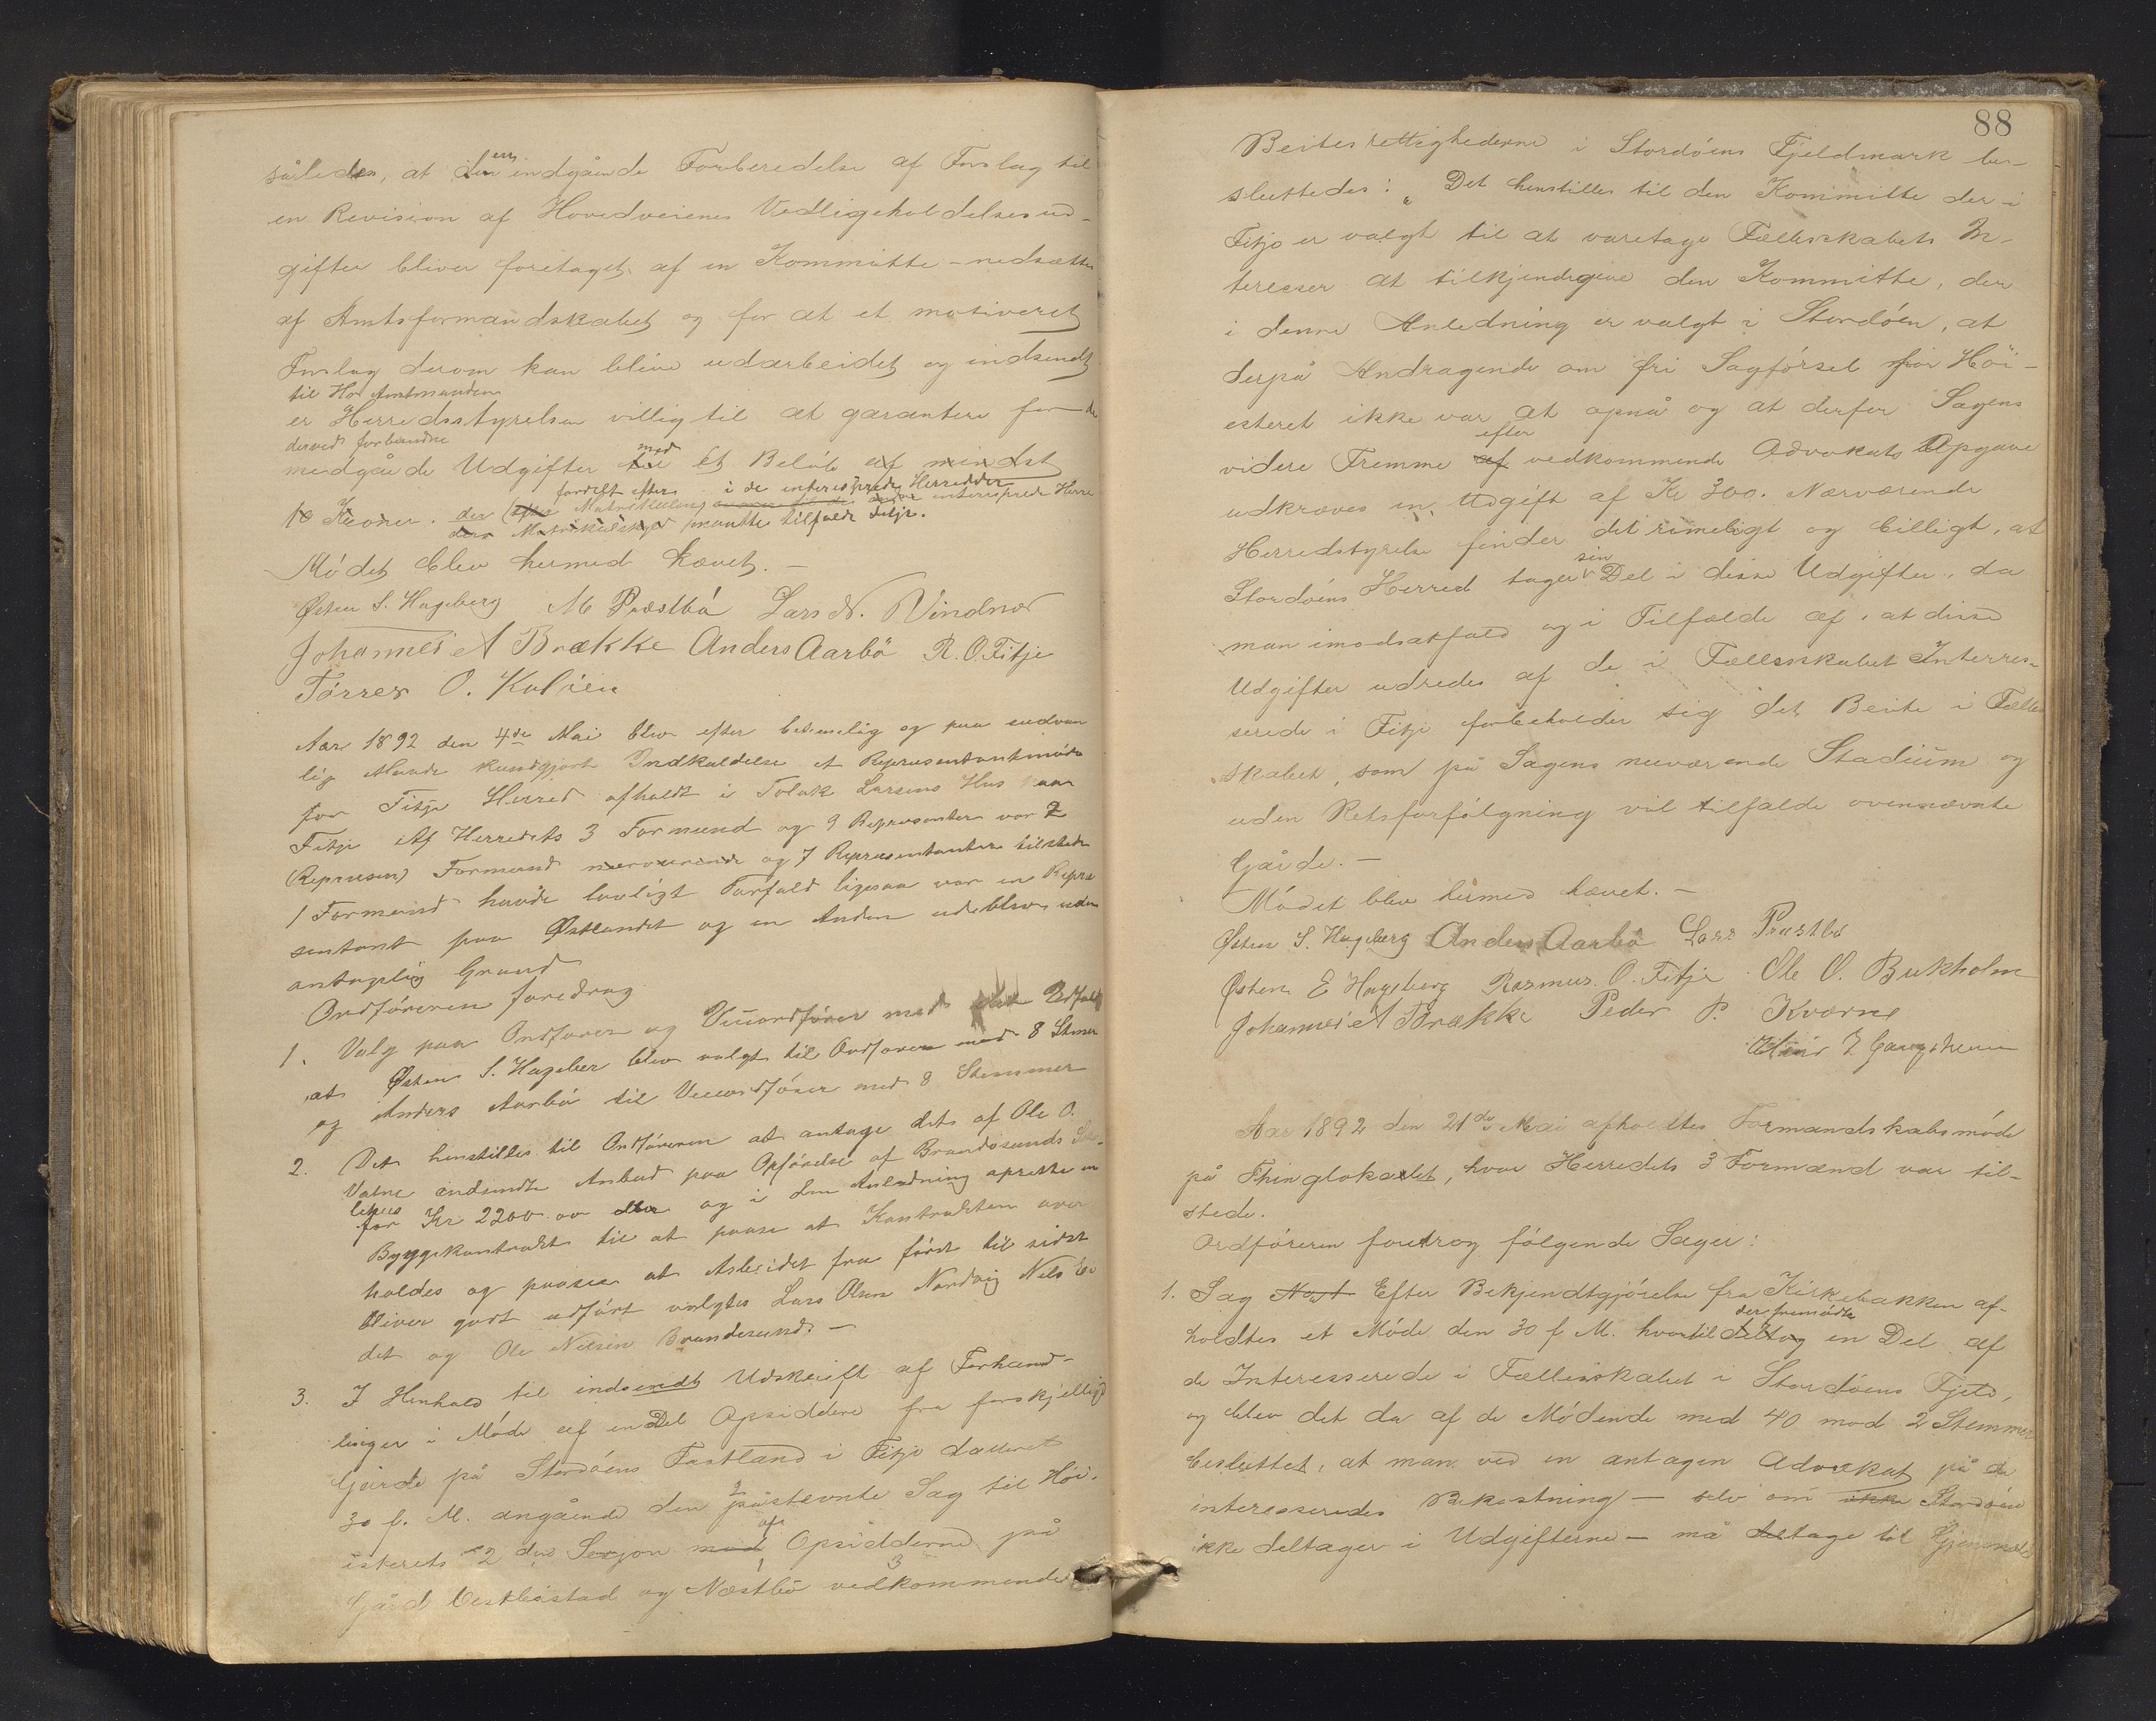 således, at den indgående Forberedelse af Forslag til
en Revision af Hovedveienes Vedligeholdelsesud-
gifter bliver foretaget af en Kommitte - nedsættes
af Amtsformandskabet og for at et motiveret
Forslag derom kan blive udarbeidet og indsendt
til Hr Amtmanden
er Herredsstyrelsen villig til at garantere for de
derved forbundne
medgåede Udgifter med et Beløb af mindst
fordelt efter i de interesserede Herredder
10 Kroner. der (efter Matrikulen) interesserede Herre
ders Matrikulskyld måtte tilfalde Fitje.
Mödet blev hermed hævet. -
Østen S. Hageberg M Præstbö Lars N. Vindnæs
Johannes A Brække Anders Aarbö R. O. Fitje
Törres O. Koløen
Aar 1892 den 4de Mai blev efter betimelig og paa sedvan
lig Maade kundgjort Indkaldelse et Representantmøde
for Fitje Herred afholdt i Tolak Larsens Hus paa
Fitje Af Herredets 3 Formænd og 9 Representer var 2
(Represen) Formænd nærværende og 7 Representanter tilstede
1 Formand havde lovligt Forfald ligesaa var en Repre
sentant paa Østlandet og en Anden udeblev uden
antagelig Grund
Ordføreren foredrog
1. Valg paa Ordfører og Viceordfører med Udfald
at Østen S. Hageber blev valgt til Ordfører med 8 Stmer
og Anders Aarbö til Viceordfører med 8 Stemmer
2. Det henstilles til Ordføreren at antage det af Ole O.
Vatne indsendte Anbud paa Opførelse af Brandøsunds Sko-
lehus
for Kr 2200.00 og i den Anledning oprette en
Byggekontrakt til at paase at Kontrakten over
holdes og paasee at Arbeidet fra først til sidst
bliver godt udført valgtes Lars Olsen Nordvig Nils Ei
det og Ole Nilsen Brandesund. -
3. I Henhold til indsendt Udskrift af Forhand-
linger i Møde af en Del Opsiddere fra forskjellige
Gårde på Stordöens Fastland i Fitje dateret
30 f. M. angående den påstevnte Sag til Høi-
esterets 2den Sesjon mod af Opsidderne på
Gård Vestbøstad og Næstbö vedkommende
88
Beitesrettighederne i Stordöens Fjeldmark be-
sluttedes: „Det henstilles til den Kommitte der i
Fitje er valgt til at varetage Fællesskabets In-
teresser at tilkjendegive den Kommitte, der
i denne Anledning er valgt i Stordöen, at
derpå Andragende om fri Sagförsel for Höi-
esteret ikke var at opnå og at derfor Sagens
videre Fremme efter vedkommende Advokats Opgave
udkræves en Udgift af Kr 300. Nærværende
Herredstyrelse finder det rimeligt og billigt, at
Stordöens Herred tager sin Del i disse Udgifter, da
man imodsatfald og i Tilfælde af, at disse
Udgifter udredes af de i Fællesskabet Interres-
serede i Fitje forbeholder sig det Beite i Fælles
skabet, som på Sagens nuværende Stadium og
uden Retsforfölgning vil tilfalde ovennævnte
Gårde. -
Mödet blev hermed hævet. -
Østen S. Hageberg Anders Aarbö Lars Præstbö
Østen E Hageberg Rasmus. O. Fitje Ole O. Bukholm
Johannes A Brække Peder P. Kværne
Aar 1892 den 21de Mai afholdtes Formandskabsmöde
på Thinglokalet, hvor Herredets 3 Formænd var til-
stede.
Ordföreren foredrog fölgende Sager:
1. Sag No 1 Efter Bekjendtgjörelse fra Kirkebakken af-
der fremmödte
holdtes et Möde den 30 f. M. hvortil deltog en Del af
de Interesserede i Fællesskabet i Stordöens Fjeld,
og blev det da af de Mödende med 40 mod 2 Stemmer
besluttet, at man ved en antagen Advokat på de
interesseredes Bekostning - selv om ikke Stordöen
ikke deltager i Udgifterne - må tage til Gjenmæle